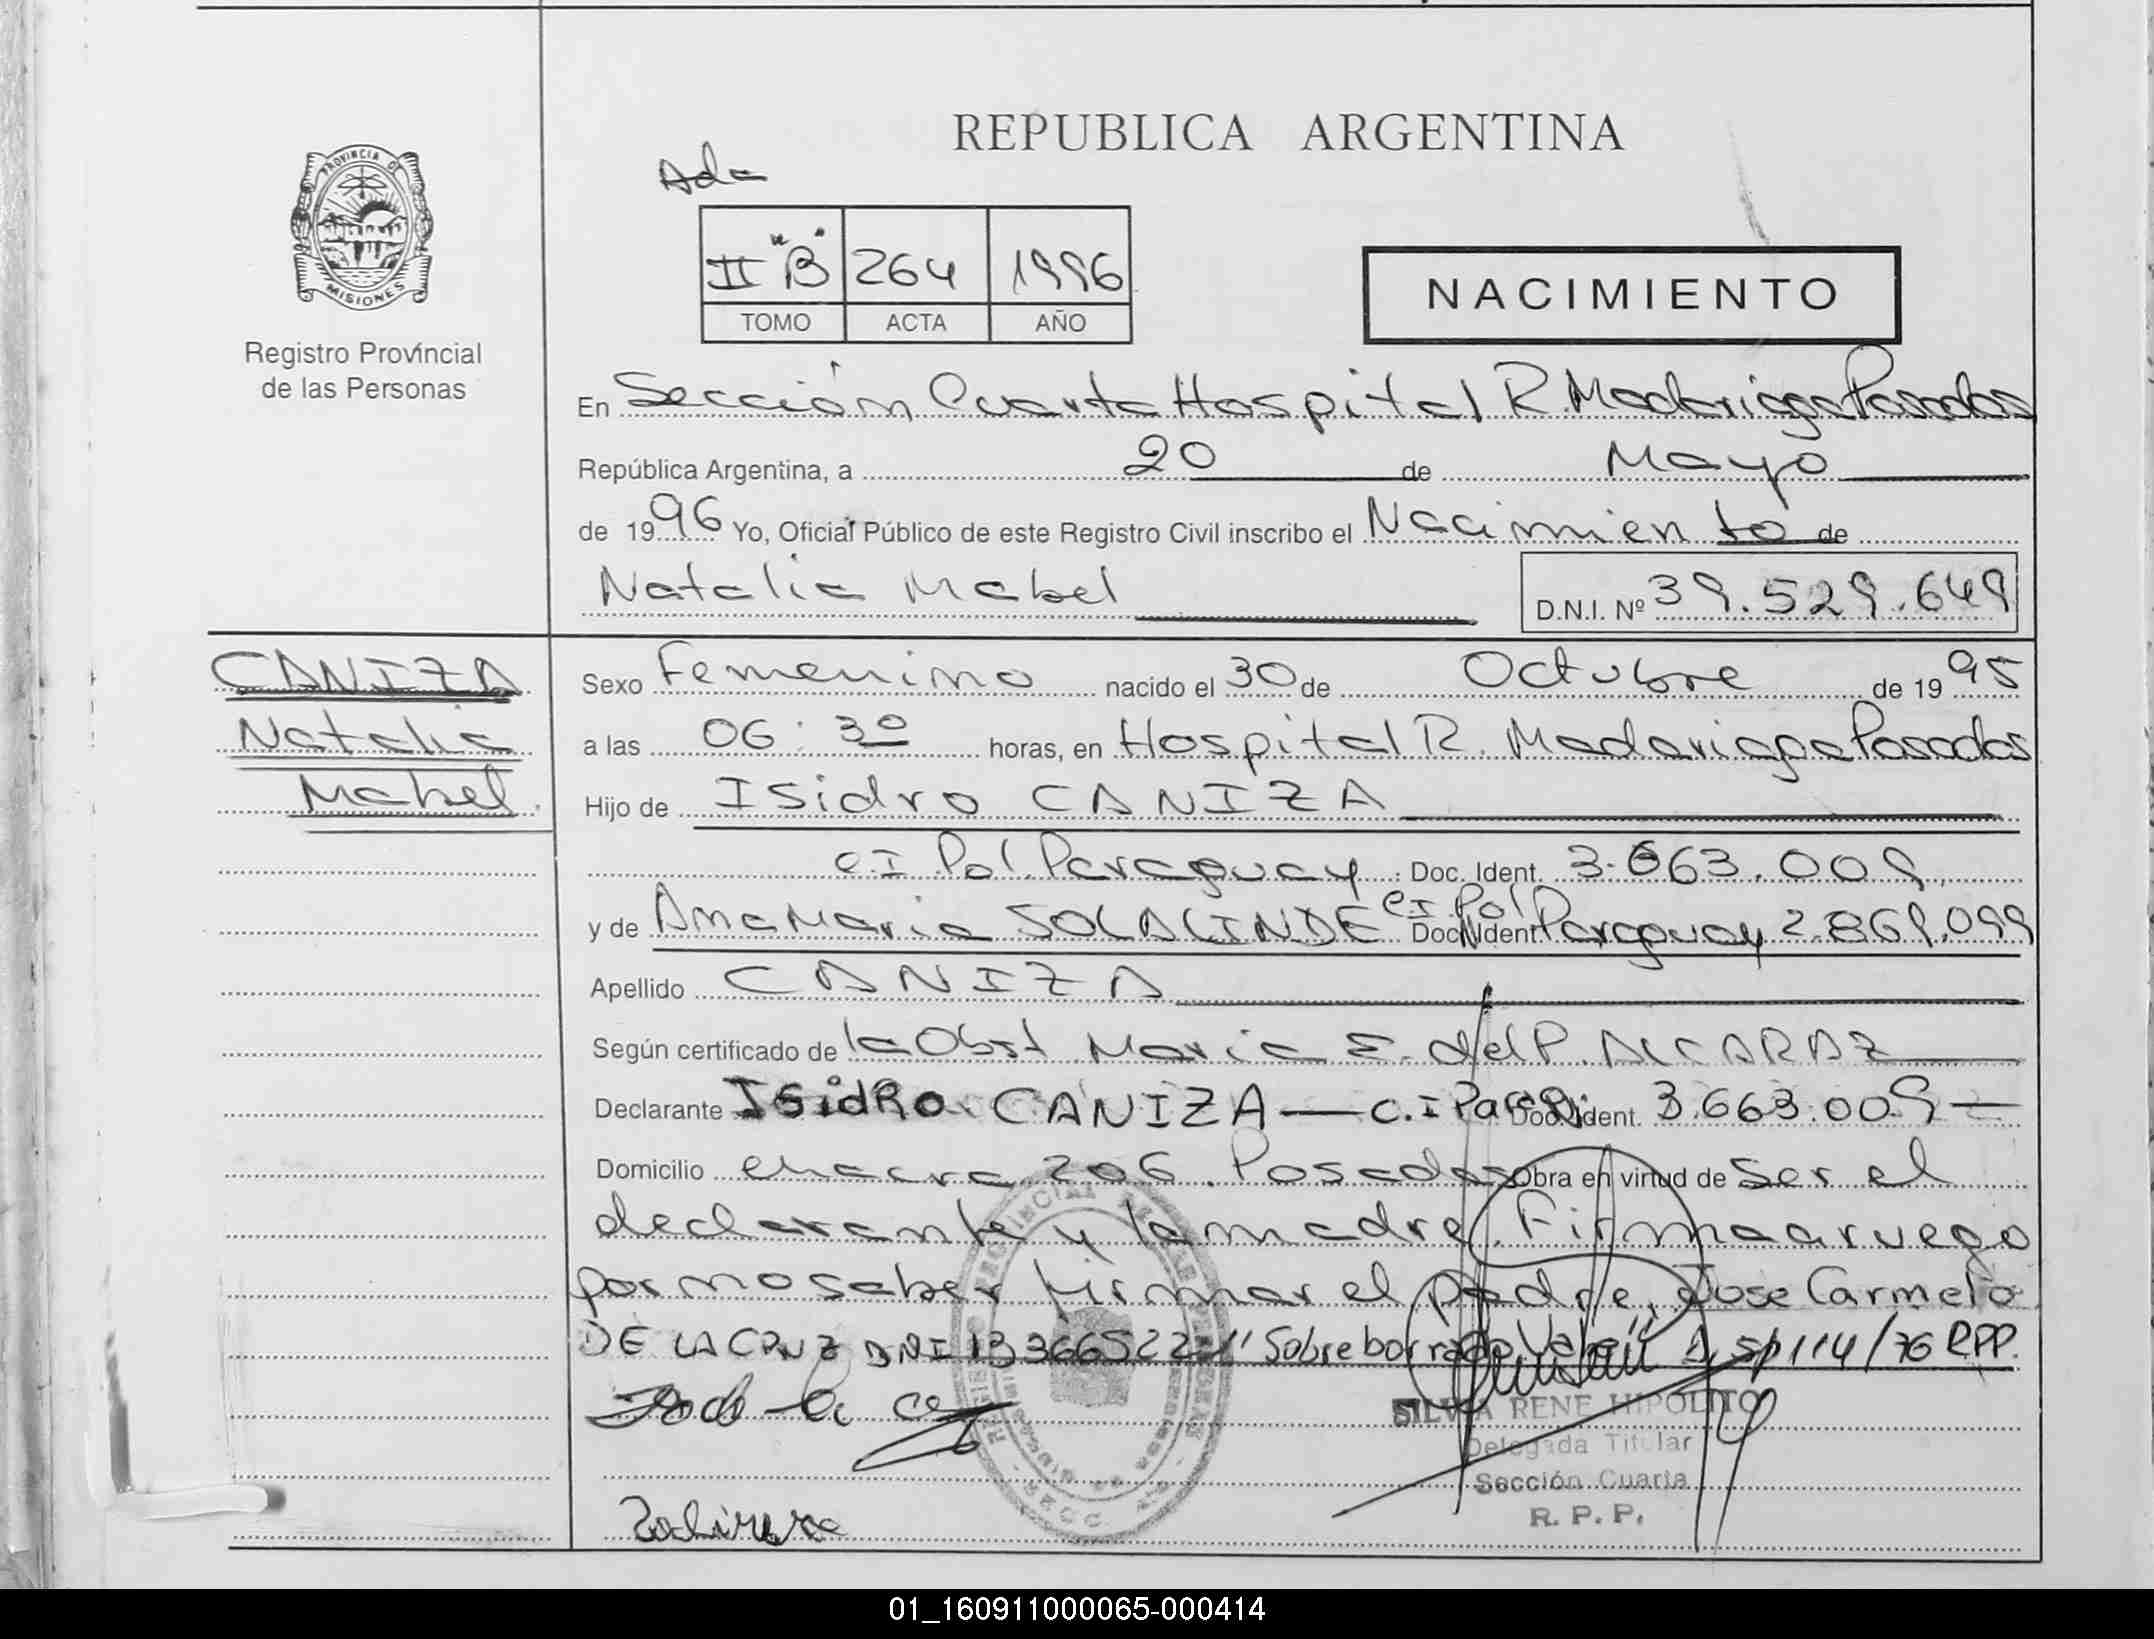 REPUBLICA ARGENTINA
PROVINCIA DE
MISIONES
Registro Provincial
de las Personas
II "B" 264 1996
TOMO ACTA AÑO
NACIMIENTO
En Sección Cuarta Hospital R. Madariaga Posadas
República Argentina, a 20 de Mayo
de 1996 Yo, Oficial Público de este Registro Civil inscribo el Nacimiento de
Natalia Mabel
D.N.I. Nº 39.529.649
CANIZA
Natalia
Mabel
Sexo Femenino nacido el 30 de Octubre de 1995
a las 06:30 horas, en Hospital R. Madariaga Posadas
Hijo de Isidro CANIZA
C.I Pol. Paraguay Doc. Ident. 3.663.009
y de Ana Maria SOLALINDE C.I. Pol Doc. Ident. Paraguay 2.869.099
Apellido CANIZA
Según certificado de la Obst Maria E. del P. ALCARAZ
Declarante Isidro CANIZA — C.I Parag. Doc. Ident. 3.663.009 —
Domicilio Chacra 206. Posadas Obra en virtud de Ser el
declarante y la madre. Firma a ruego
por no saber firmar el padre, Jose Carmelo
DE LA CRUZ DNI 13366522 "Sobre borrado Vale" D, sp 114/76 RPP.
SILVIA RENE HIPOLITO
Delegada Titular
Sección Cuarta
R. P. P.
01_160911000065-000414